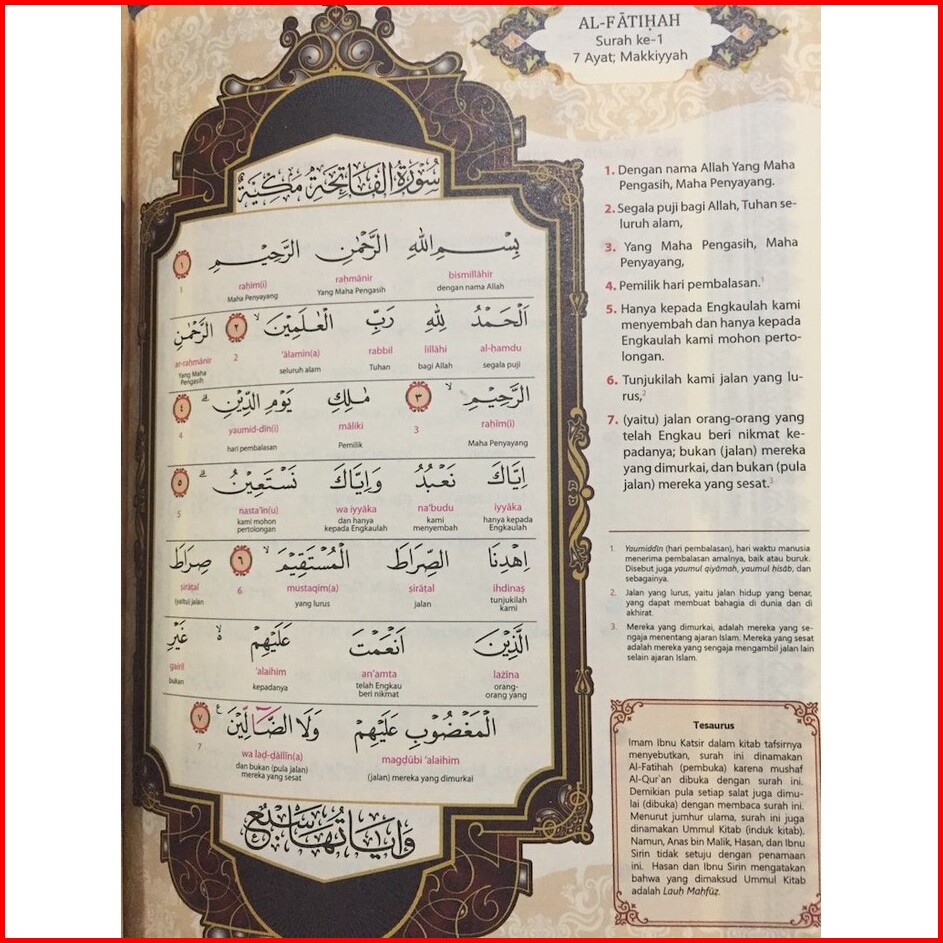 AL-FĀTIḤAH
Surah ke-1
7 Ayat; Makkiyyah
سُوْرَةُ الْفَاتِحَةِ مَكِّيَّةٌ
بِسْــمِ اللهِ الرَّحْمٰنِ الرَّحِيْـمِ ١
bismillāhir raḥmānir raḥīm(i) 1
dengan nama Allah Yang Maha Pengasih Maha Penyayang
اَلْحَمْدُ لِلّٰهِ رَبِّ الْعٰلَمِيْنَۙ ٢ الرَّحْمٰنِ
al-ḥamdu lillāhi rabbil ‘ālamīn(a) 2 ar-raḥmānir
segala puji bagi Allah Tuhan seluruh alam Yang Maha
Pengasih
الرَّحِيْمِۙ ٣ مٰلِكِ يَوْمِ الدِّيْنِۗ ٤
raḥīm(i) 3 māliki yaumid-dīn(i) 4
Maha Penyayang Pemilik hari pembalasan
اِيَّاكَ نَعْبُدُ وَاِيَّاكَ نَسْتَعِيْنُۗ ٥
iyyāka na‘budu wa iyyāka nasta‘īn(u) 5
hanya kepada kami dan hanya kami mohon
Engkaulah menyembah kepada Engkaulah pertolongan
اِهْدِنَا الصِّرَاطَ الْمُسْتَقِيْمَۙ ٦ صِرَاطَ
ihdinaṣ ṣirāṭal mustaqīm(a) 6 ṣirāṭal
tunjukilah jalan yang lurus (yaitu) jalan
kami
الَّذِيْنَ اَنْعَمْتَ عَلَيْهِمْ ەۙ غَيْرِ
lażīna an‘amta ‘alaihim gairil
orang- telah Engkau kepadanya bukan
orang yang beri nikmat
الْمَغْضُوْبِ عَلَيْهِمْ وَلَا الضَّاۤلِّيْنَ ࣖ ٧
magḍūbi ‘alaihim wa laḍ-ḍāllīn(a) 7
(jalan) mereka yang dimurkai dan bukan (pula jalan)
mereka yang sesat
وَاٰيَاتُهَا سَبْعٌ
1. Dengan nama Allah Yang Maha
Pengasih, Maha Penyayang.
2. Segala puji bagi Allah, Tuhan se-
luruh alam,
3. Yang Maha Pengasih, Maha
Penyayang,
4. Pemilik hari pembalasan.1
5. Hanya kepada Engkaulah kami
menyembah dan hanya kepada
Engkaulah kami mohon perto-
longan.
6. Tunjukilah kami jalan yang lu-
rus,2
7. (yaitu) jalan orang-orang yang
telah Engkau beri nikmat ke-
padanya; bukan (jalan) mereka
yang dimurkai, dan bukan (pula
jalan) mereka yang sesat.3
1. Yaumiddīn (hari pembalasan), hari waktu manusia
menerima pembalasan amalnya, baik atau buruk.
Disebut juga yaumul qiyāmah, yaumul ḥisāb, dan
sebagainya.
2. Jalan yang lurus, yaitu jalan hidup yang benar,
yang dapat membuat bahagia di dunia dan di
akhirat.
3. Mereka yang dimurkai, adalah mereka yang se-
ngaja menentang ajaran Islam. Mereka yang sesat
adalah mereka yang sengaja mengambil jalan lain
selain ajaran Islam.
Tesaurus
Imam Ibnu Katsir dalam kitab tafsirnya
menyebutkan, surah ini dinamakan
Al-Fatihah (pembuka) karena mushaf
Al-Qur`an dibuka dengan surah ini.
Demikian pula setiap salat juga dimu-
lai (dibuka) dengan membaca surah ini.
Menurut jumhur ulama, surah ini juga
dinamakan Ummul Kitab (induk kitab).
Namun, Anas bin Malik, Hasan, dan Ibnu
Sirin tidak setuju dengan penamaan
ini. Hasan dan Ibnu Sirin mengatakan
bahwa yang dimaksud Ummul Kitab
adalah Lauḥ Maḥfūẓ.